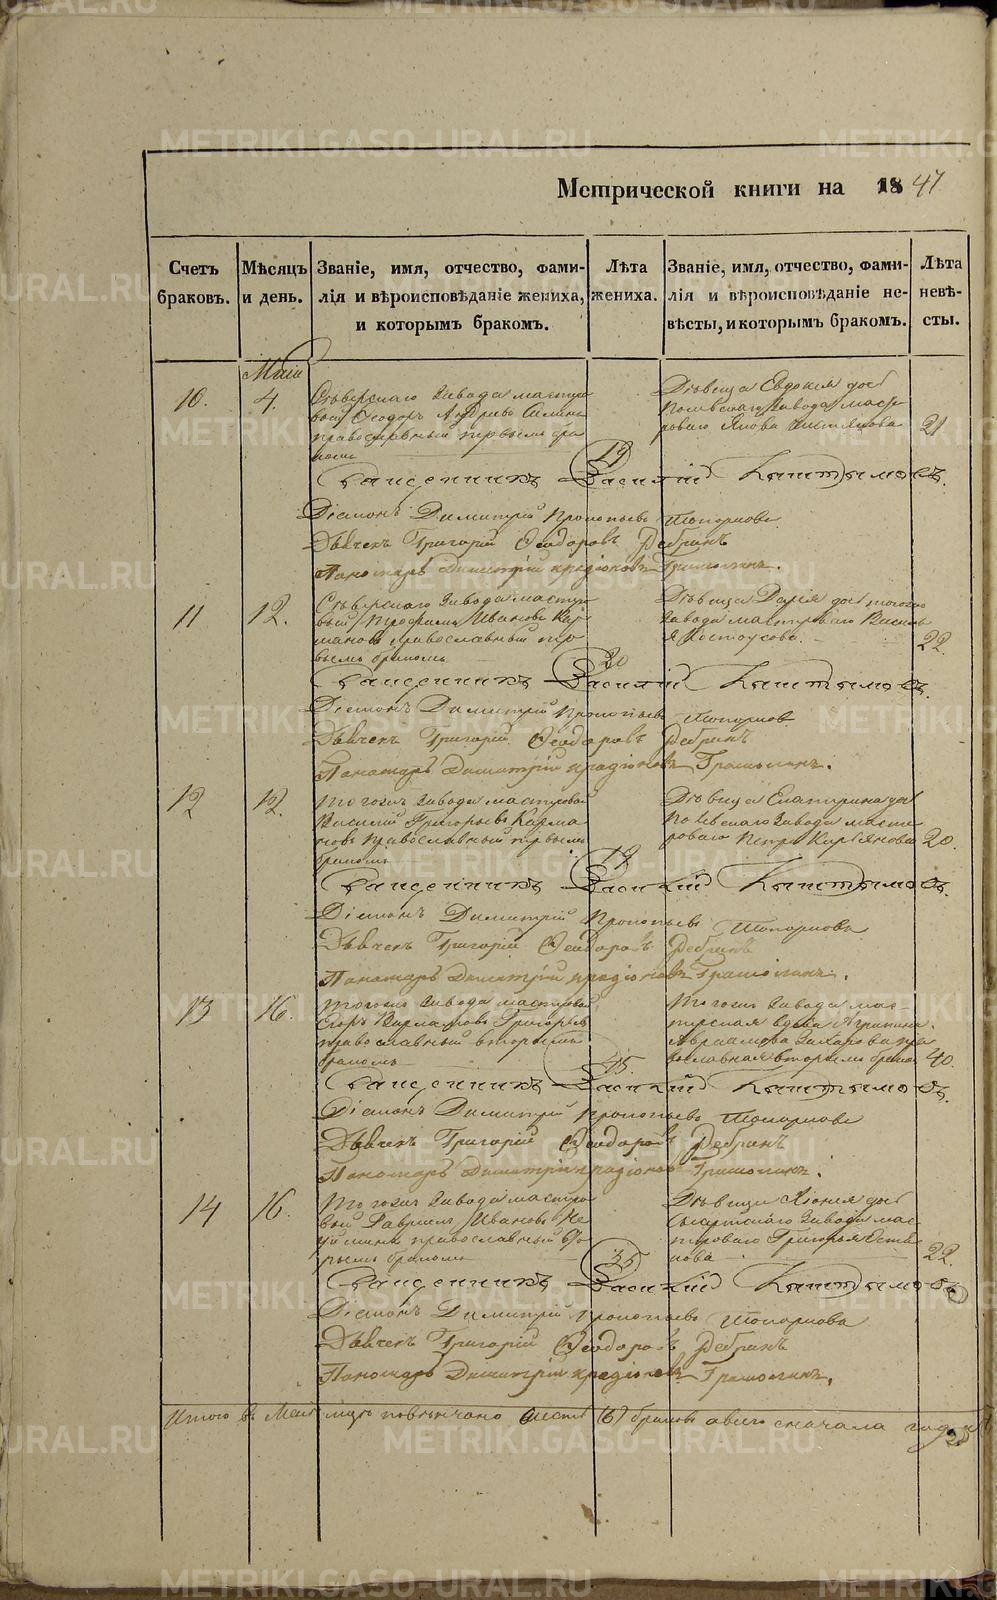 Метрической книги на 1847
Счетъ браковъ.
Мѣсяцъ и день.
Званіе, имя, отчество, фами-
лія и вѣроисповѣданіе жениха,
и которымъ бракомъ.
Лѣта жениха.
Званіе, имя, отчество, фами-
лія и вѣроисповѣданіе не-
вѣсты, и которымъ бракомъ.
Лѣта невѣ-
сты.
Маія
10.
4.
Сѣверскаго завода мастер
вой Ѳеодоръ Андреевъ
православный первымъ бра
комъ
19
Дѣвица Евдокія доч
Полевскаго завода масте
роваго Якова
21
Священникъ Василій Кыштымовъ.
Діаконъ Димитрій Прокопьевъ Топорковъ
Дьячекъ Григорій Ѳеодоровъ Ребринъ
Пономарь Димитрій
11
12.
Сѣверскаго завода мастер
вой Трофимъ Ивановъ Кар
мановъ православный пер
вымъ бракомъ
20
Дѣвица Дарія доч тогожъ
завода мастероваго
Хвостоусова.
22.
Священникъ Василій Кыштымовъ.
Діаконъ Димитрій Прокопьевъ Топорковъ
Дьячекъ Григорій Ѳеодоровъ Ребринъ
Пономарь Димитрій
12
12.
Тогожъ завода мастеровой
Василий Григорьевъ Карма
новъ православный первымъ
бракомъ
19
Дѣвица Екатерина доч
Полевскаго завода масте
роваго Петра
20.
Священникъ Василій Кыштымовъ.
Діаконъ Димитрій Прокопьевъ Топорковъ
Дьячекъ Григорій Ѳеодоровъ Ребринъ
Пономарь Димитрій
13
16.
Тогожъ завода мастеровой
Егоръ Григорьевъ
православный вторымъ
бракомъ
45.
Тогожъ завода мас-
терская вдова Агрипина
Авраамова Захарова пра
вославная вторымъ бракомъ
40.
Священникъ Василій Кыштымовъ.
Діаконъ Димитрій Прокопьевъ Топорковъ
Дьячекъ Григорій Ѳеодоровъ Ребринъ
Пономарь Димитрій
14
16.
Тогожъ завода мастеро
вой Гавриилъ Ивановъ Не
уйминъ православный вто
рымъ бракомъ
35
Дѣвица Хіонія доч
Сысертскаго завода мас
тероваго Григорья
22.
Священникъ Василій Кыштымовъ
Діаконъ Димитрій Прокопьевъ Топорковъ
Дьячекъ Григорій Ѳеодоровъ Ребринъ
Пономарь Димитрій
Итого в Маѣ мцѣ повѣнчано шесть (6) браковъ а всего сначала года
METRIKI.GASO-URAL.RU